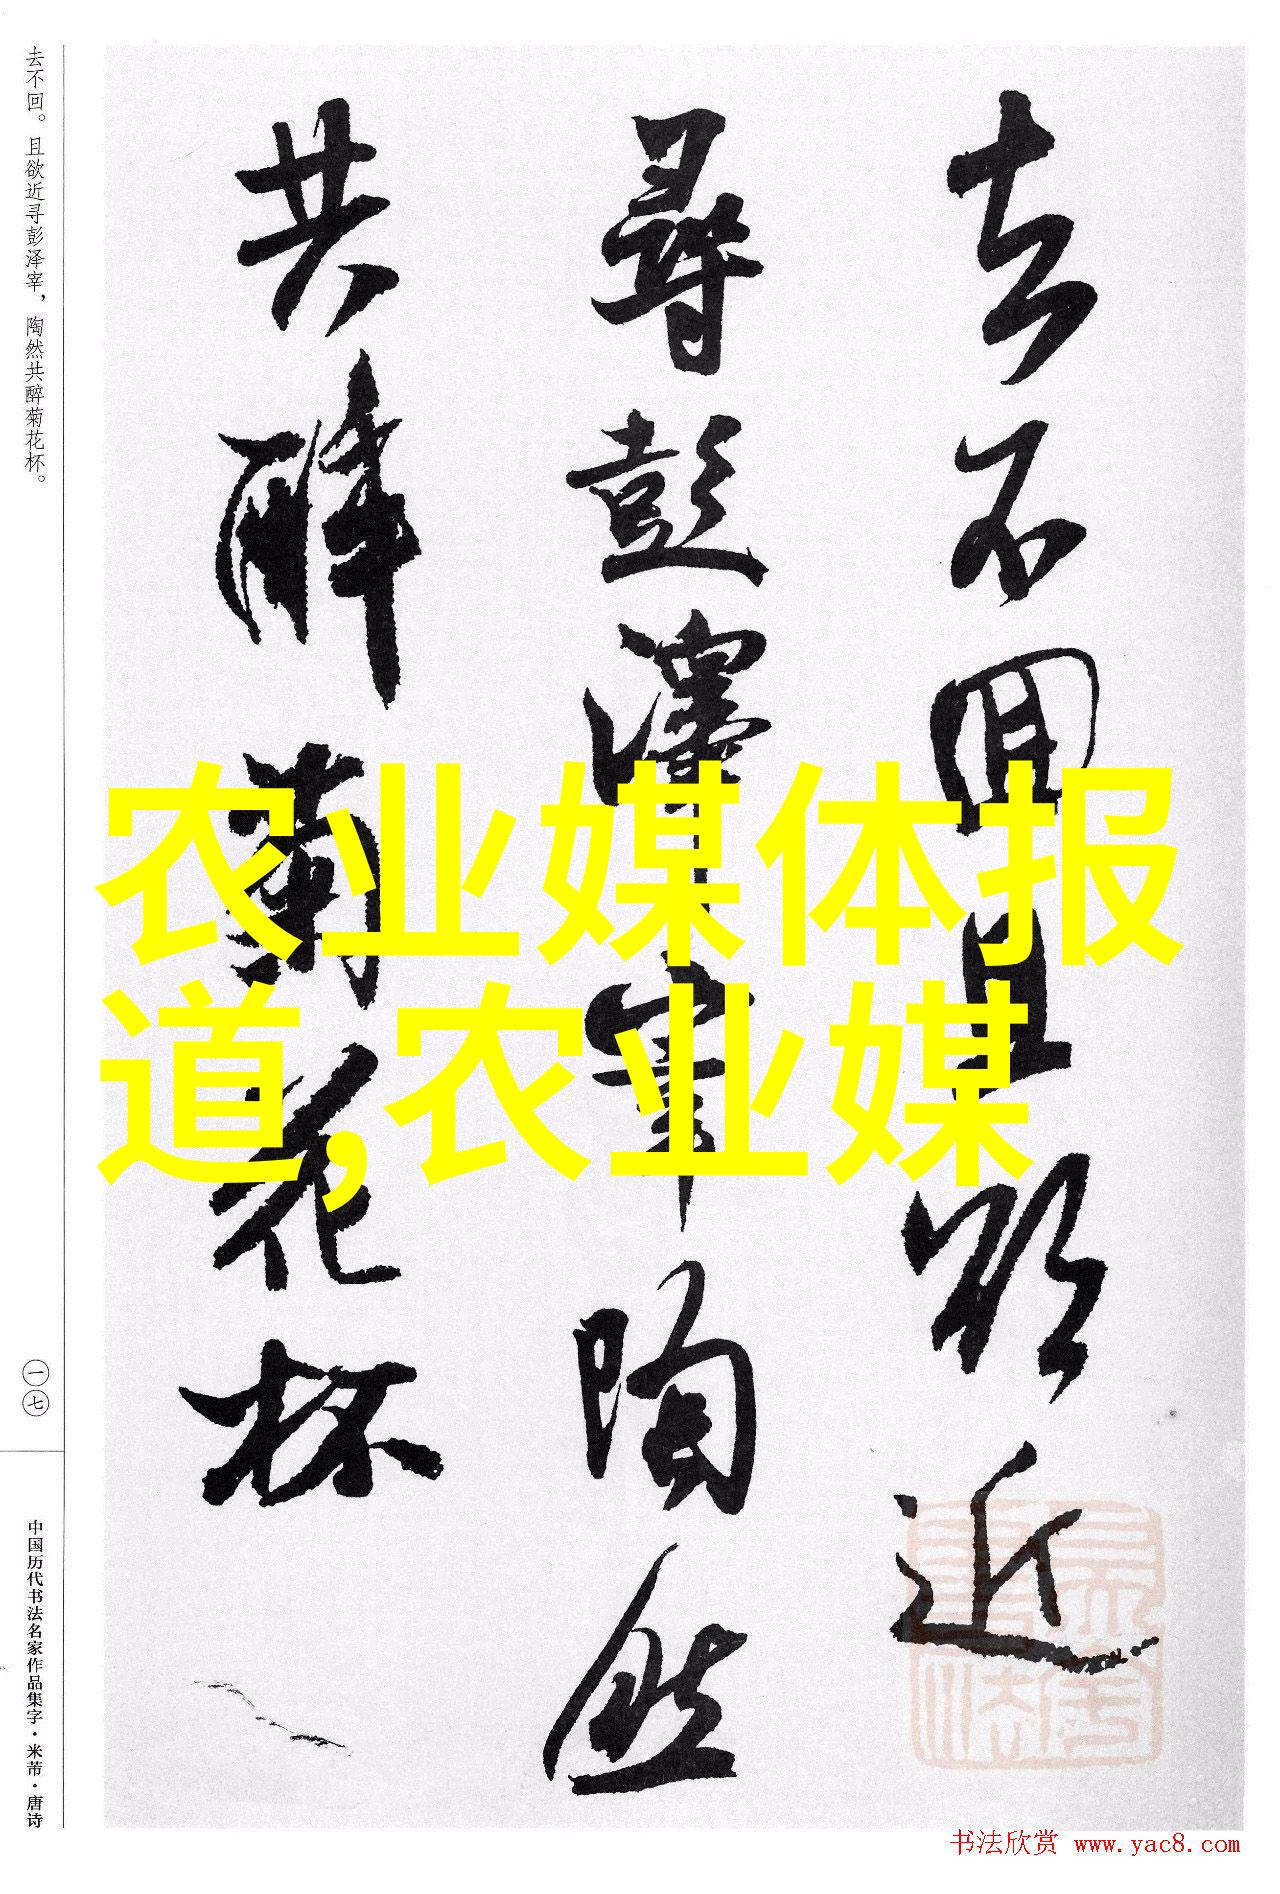 去不回且欲近
尋彭澤宰陶然
共醉菊花杯
农业媒体报
道,农业媒
去不回。且欲近寻彭泽宰，陶然共醉菊花杯。
一七
中国历代书法名家作品集字·米芾·唐诗
书法欣赏 www.yac8.com